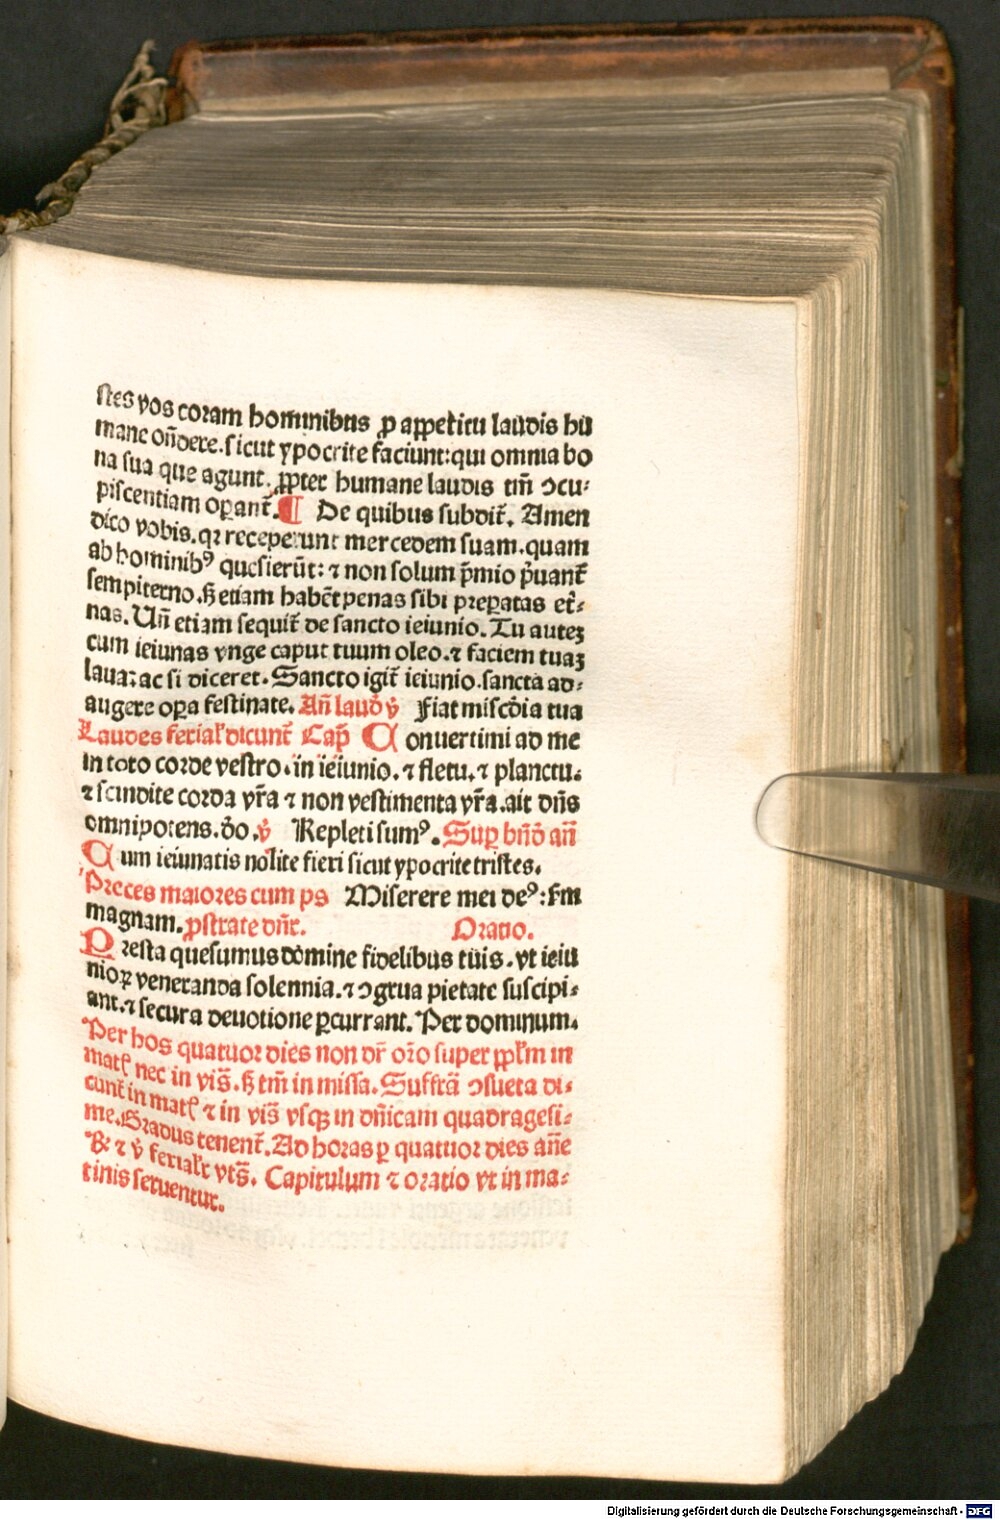 ſtes vos coram hominibus ꝓ appetitu laudis hū
mane oñdere. ſicut ypocrite faciunt: qui omnia bo
na ſua que agunt. ꝓpter humane laudis tm̄ ↄcu⸗
piſcentiam oꝑant̄. ¶ De quibus ſubdit̄. Amen
dico vobis. qꝛ receperunt mercedem ſuam. quam
ab hominibꝰ queſierūt: ⁊ non ſolum p̄mio pͥuant̄
ſempiterno. ꞩ etiam habēt penas ſibi preꝑatas et̄⸗
nas. Uñ etiam ſequit̄ de ſancto ieiunio. Tu auteꝫ
cum ieiunas vnge caput tuum oleo. ⁊ faciem tuaꝫ
laua: ac ſi diceret. Sancto igit̄ ieiunio. ſancta ad⸗
augere oꝑa feſtinate. Añ laud̄ ꝟ Fiat miſcd̄ia tua
Laudes ferial̓ dicunt̄ Cap̄ Conuertimi ad me
in toto corde veſtro. in ieiunio. ⁊ fletu. ⁊ planctu.
⁊ ſcindite corda vr̄a ⁊ non veſtimenta vr̄a. ait dn̄s
omnipotens. d̄o. ꝟ Repleti ſumꝰ. Suꝑ bn̄d̄ añ
Cum ieiunatis nolite fieri ſicut ypocrite triſtes.
Preces maiores cum ps Miſerere mei deꝰ: ſm
magnam. ꝓſtrate dn̄r. Oratio.
Preſta queſumus domine fidelibus tuis. vt ieiu
nioꝝ veneranda ſolennia. ⁊ ↄgrua pietate ſuſcipi⸗
ant. ⁊ ſecura deuotione ꝑcurrant. Per dominum.
Per hos quatuor dies non dr̄ or̄o ſuper ppl̄m in
matꝭ nec in viſ̄. ꞩ tm̄ in miſſa. Suffrā ↄſueta di⸗
cunt̄ in matꝭ ⁊ in viſ̄ vſqꝫ in dn̄icam quadrageſi⸗
me. Gradus tenent̄. Ad horas ꝑ quatuor dies añe
℞ ⁊ ꝟ ferial̓r vtſ̄. Capitulum ⁊ oratio vt in ma⸗
tinis ſeruentur.
Digitalisierung gefördert durch die Deutsche Forschungsgemeinschaft - DFG